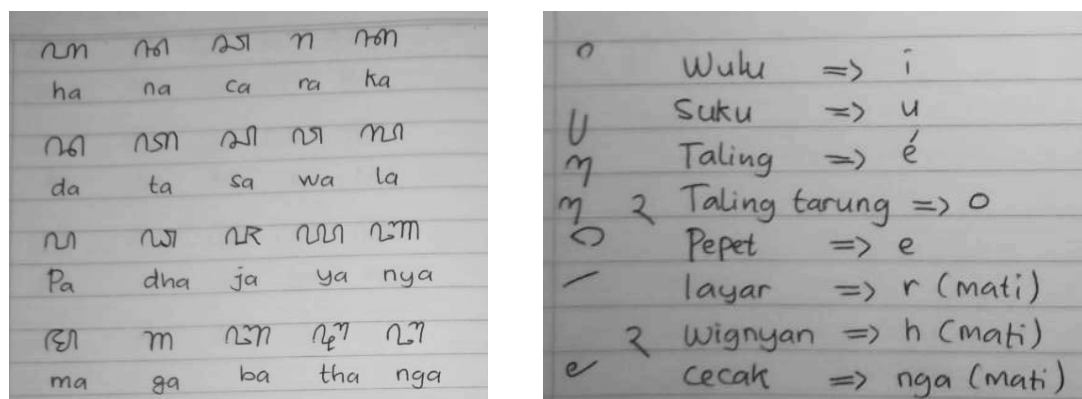 ꦲ ꦤ ꦕ ꦫ ꦏ
ha na ca ra ka
ꦢ ꦠ ꦱ ꦮ ꦭ
da ta sa wa la
ꦥ ꦝ ꦗ ꦪ ꦚ
Pa dha ja ya nya
ꦩ ꦒ ꦧ ꦛ ꦔ
ma ga ba tha nga
ꦶ Wulu => i
ꦸ Suku => u
ꦺ Taling => é
ꦺ ꦴ Taling tarung => o
ꦼ Pepet => e
ꦂ layar => r (mati)
ꦃ wignyan => h (mati)
ꦁ cecak => nga (mati)